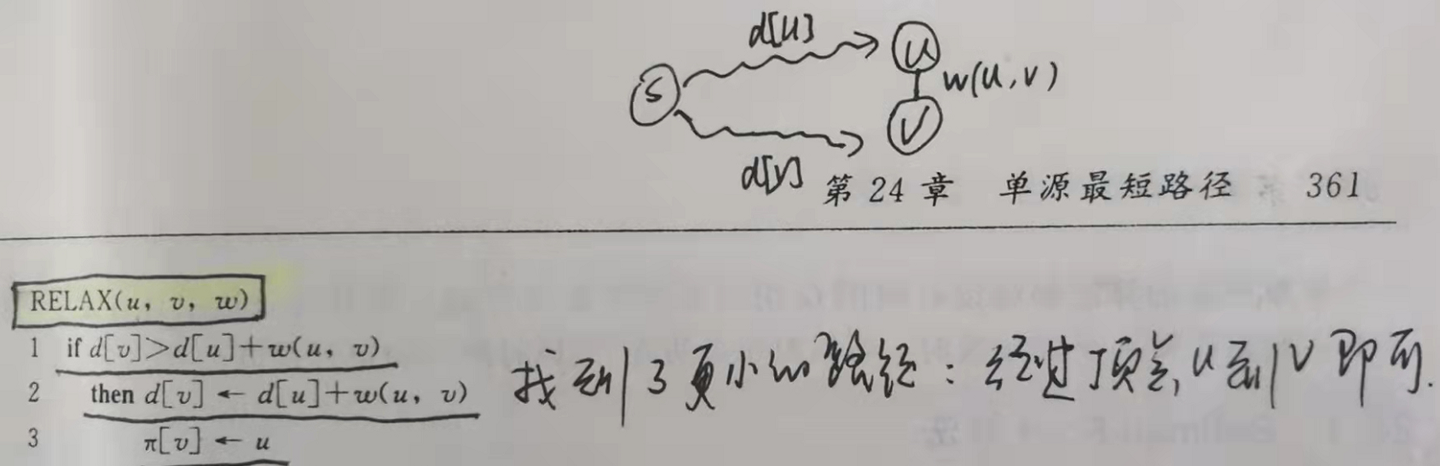 d[u]
u
S
w(u,v)
v
d[v]
第 24 章 单源最短路径 361
RELAX(u, v, w)
1 if d[v]>d[u]+w(u, v)
2 then d[v] ← d[u]+w(u, v) 找到了更小的路径：经过顶点u到V即可.
3 π[v] ← u